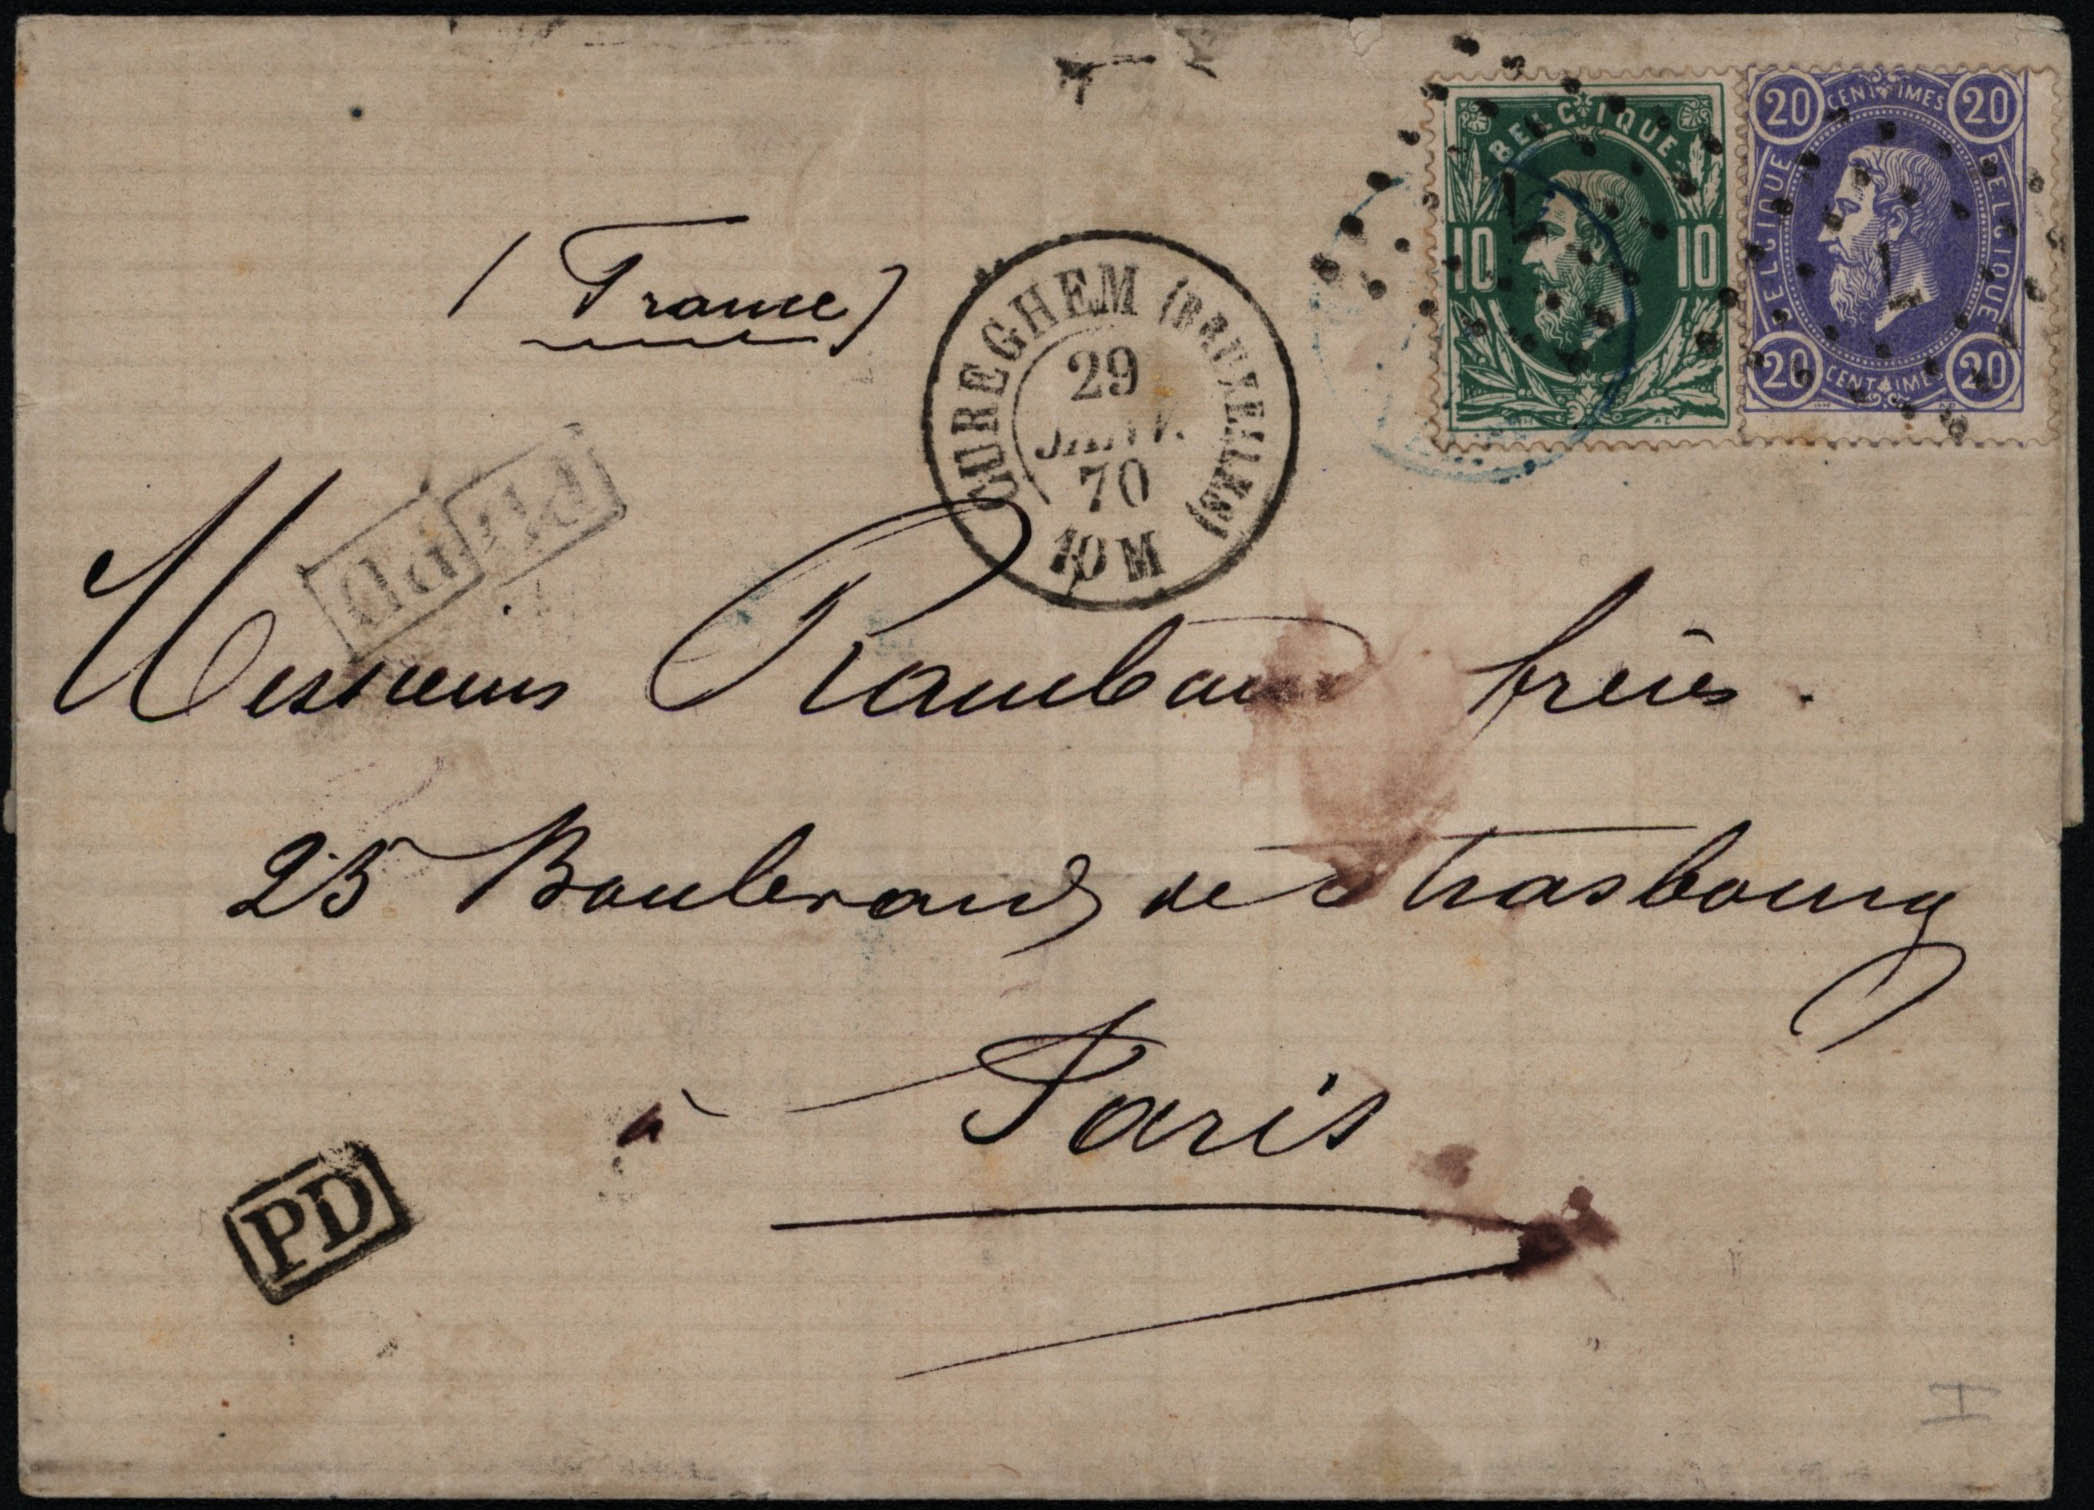 BELGIQUE
10 10
CENTIMES
20 20
BELGIQUE BELGIQUE
20 20
CENTIMES
(France)
CUREGHEM (BRUXELLES)
29
JANV.
70
10 M
Messieurs Rambaud frères.
25 Boulevard de Strasbourg
à Paris
PD
I